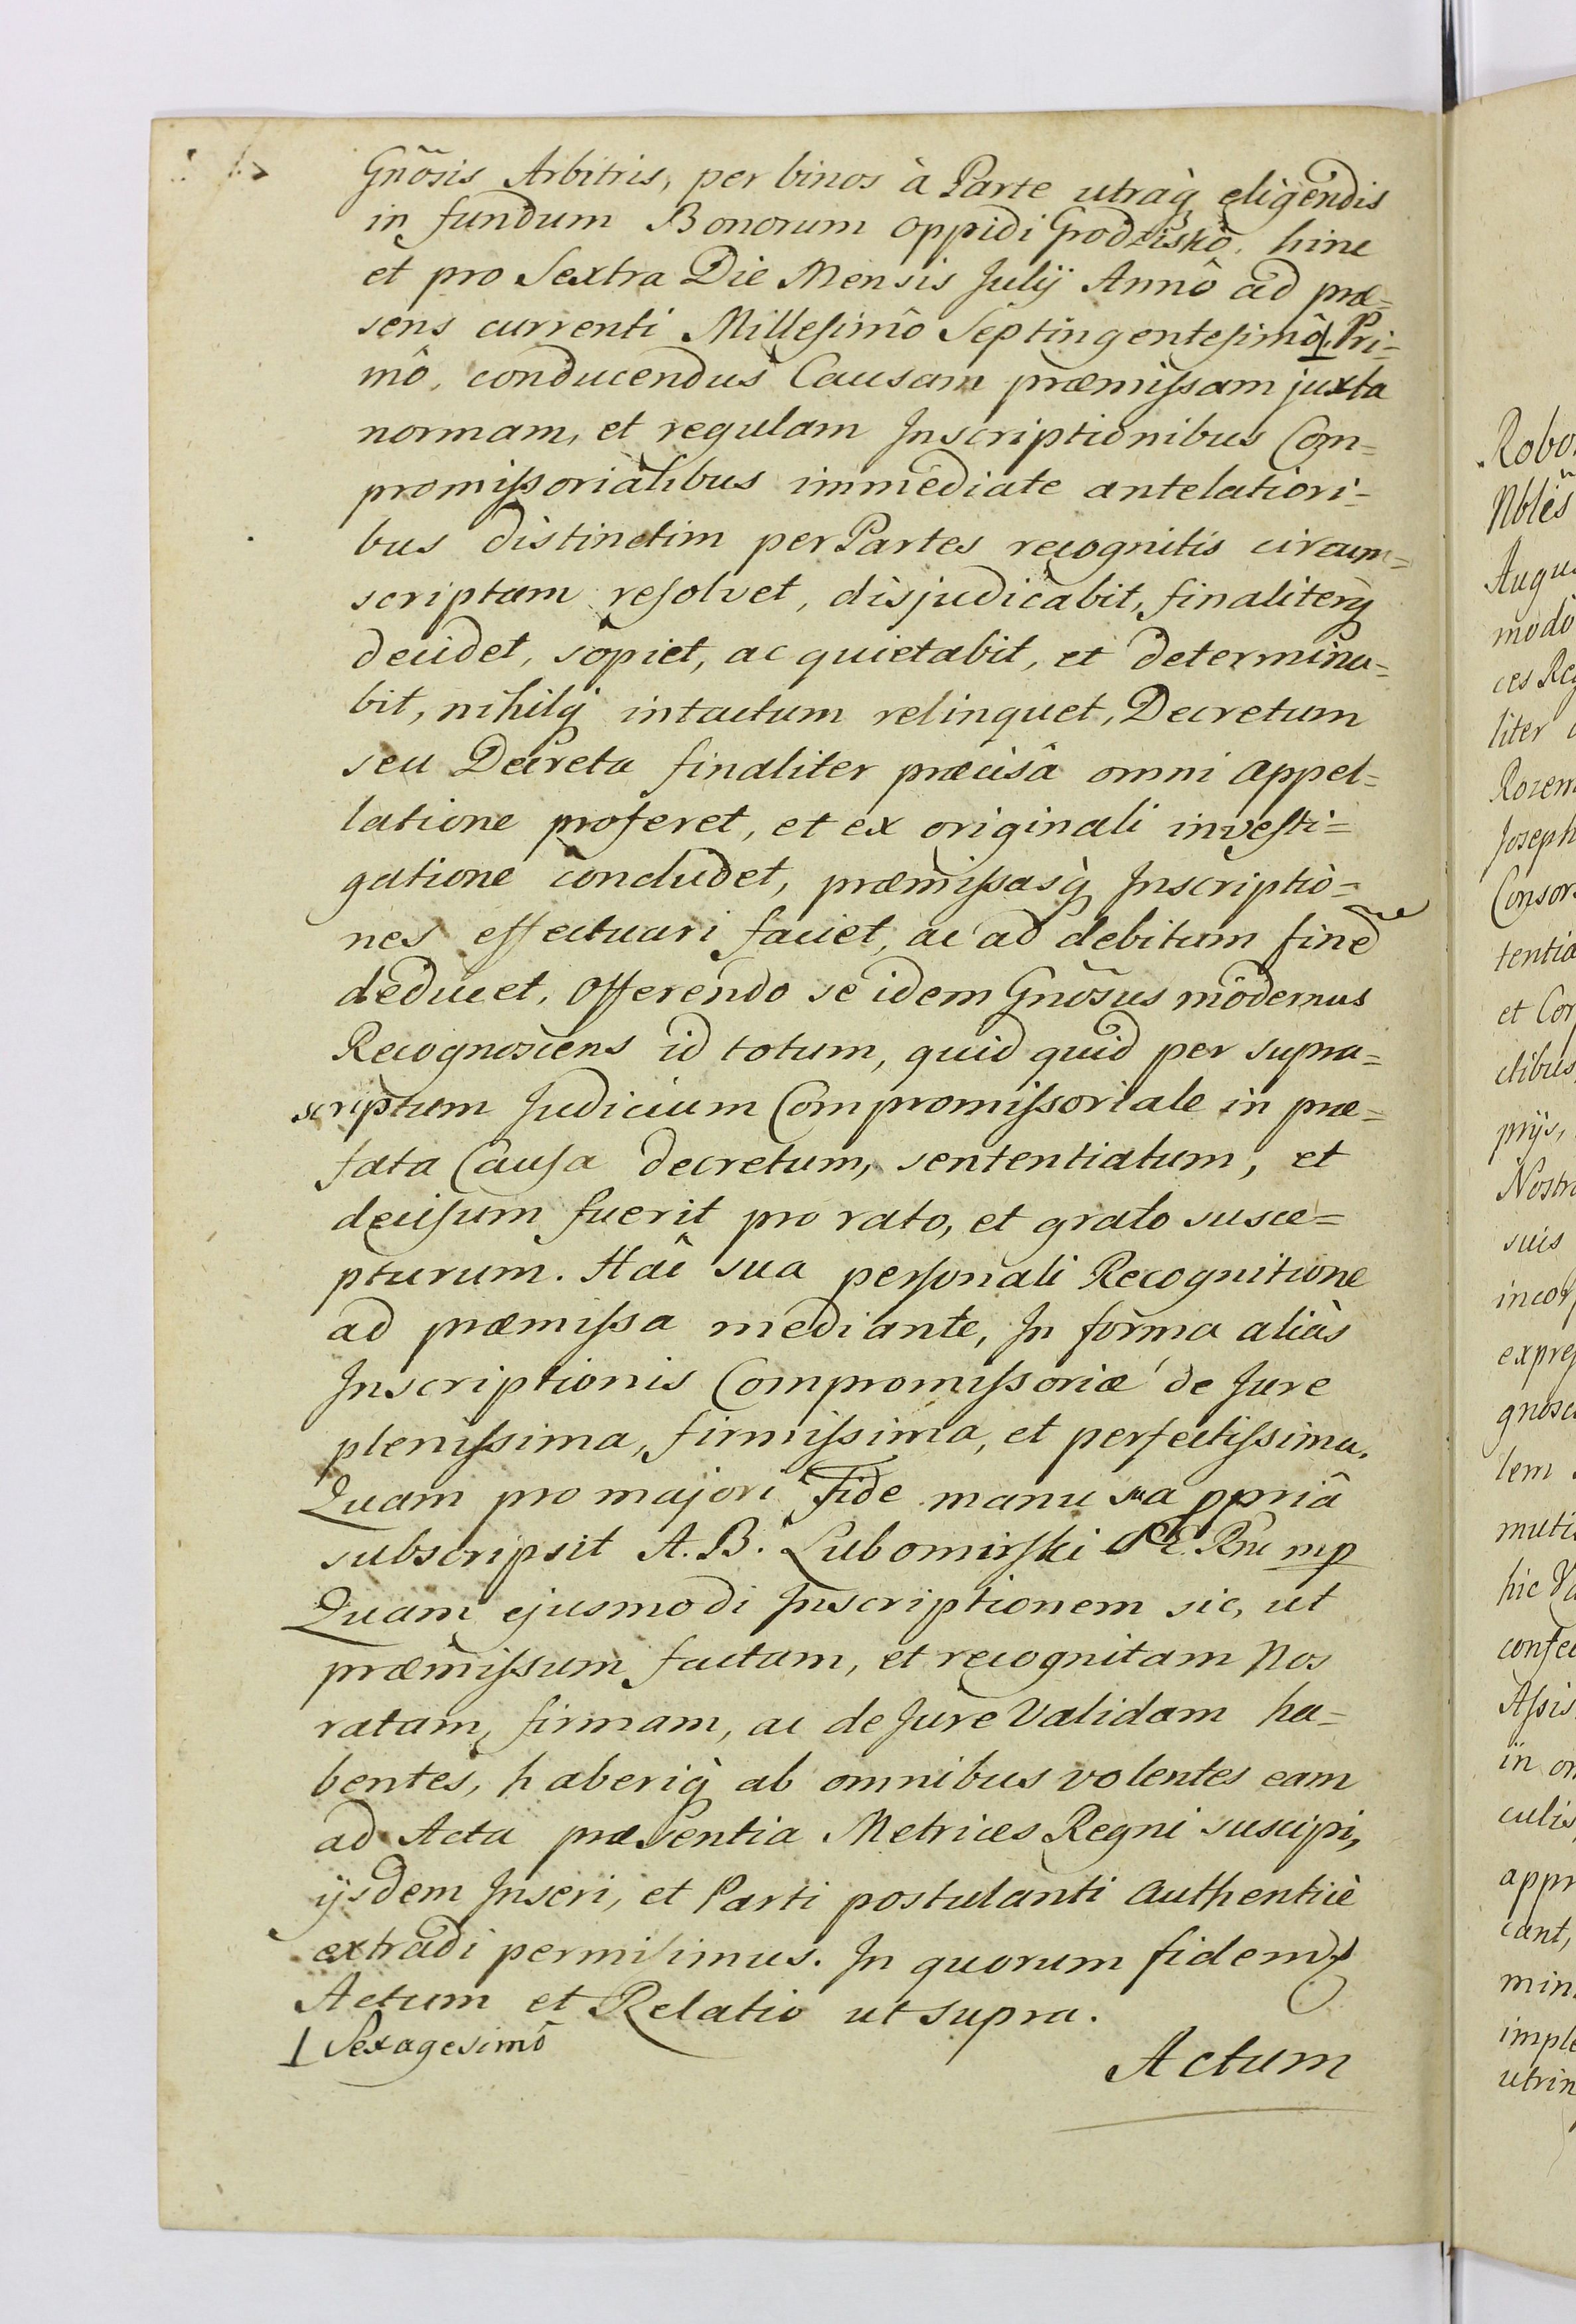 Gnõsis Arbitris, per binos à Parte utraq; eligendis
in fundum Bonorum Oppidi Grodzisko, hinc
et pro Sextra Die Mensis Julij Annô ad præ=
sens currenti Millesimô Septingentesimô ⊥ Pri=
mô, conducendus Causam præmissam juxta
normam, et regulam Inscriptionibus Com=
promissorialibus immediate antelatiori=
bus distinctim per Partes recognitis circum=
scriptam resolvet, disjudicabit, finaliterq;
decidet, sopiet, ac quietabit, et determina=
bit, nihilq; intactum relinquet, Decretum
seu Decreta finaliter præcisâ omni appel=
latione proferet, et ex originali investi=
gatione concludet, præmissasq; Inscriptio=
nes effectuari faciet, ac ad debitum finẽ
deducet, Offerendo se idem Gnõsus modernus
Recognoscens id totum, quid quid per supra=
scriptum Judicium Compromissoriale in præ=
fata Causa decretum, sententiatum, et
decisum fuerit pro rato, et grato susce=
pturum. Hac sua personali Recognitione
ad præmissa mediante, In forma aliàs
Inscriptionis Compromissoriæ de Jure
plenissima, firmissima, et perfectissima.
Quam pro majori Fide manu sua ppriâ
subscripsit A. B. Lubomirski mp
Quam ejusmodi Inscriptionem sic, ut
præmissum factam, et recognitam Nos
ratam, firmam, ac de Jure Validam ha=
bentes, haberiq; ab omnibus volentes eam
ad Acta præsentia Metrices Regni suscipi,
ijsdem Inseri, et Parti postulanti Authenticè
extradi permisimus. In quorum fidem
Actum et Relatio ut supra.
⊥ Sexagesimô
Actum
Nblẽs
modô
liter
Joseph
et Cor
suis
lem
in
min